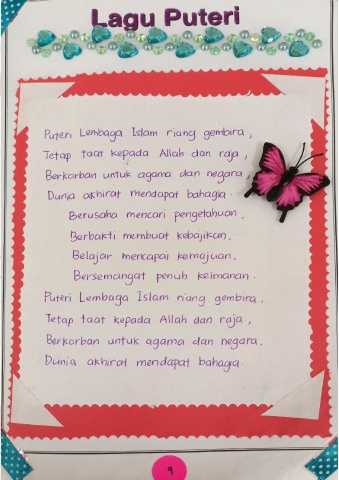 Lagu Puteri
Puteri Lembaga Islam riang gembira,
Tetap taat kepada Allah dan raja,
Berkorban untuk agama dan negara,
Dunia akhirat mendapat bahagia.
Berusaha mencari pengetahuan,
Berbakti membuat kebajikan.
Belajar mencapai kemajuan,
Bersemangat penuh keimanan.
Puteri Lembaga Islam riang gembira,
Tetap taat kepada Allah dan raja,
Berkorban untuk agama dan negara,
Dunia akhirat mendapat bahagia.
9